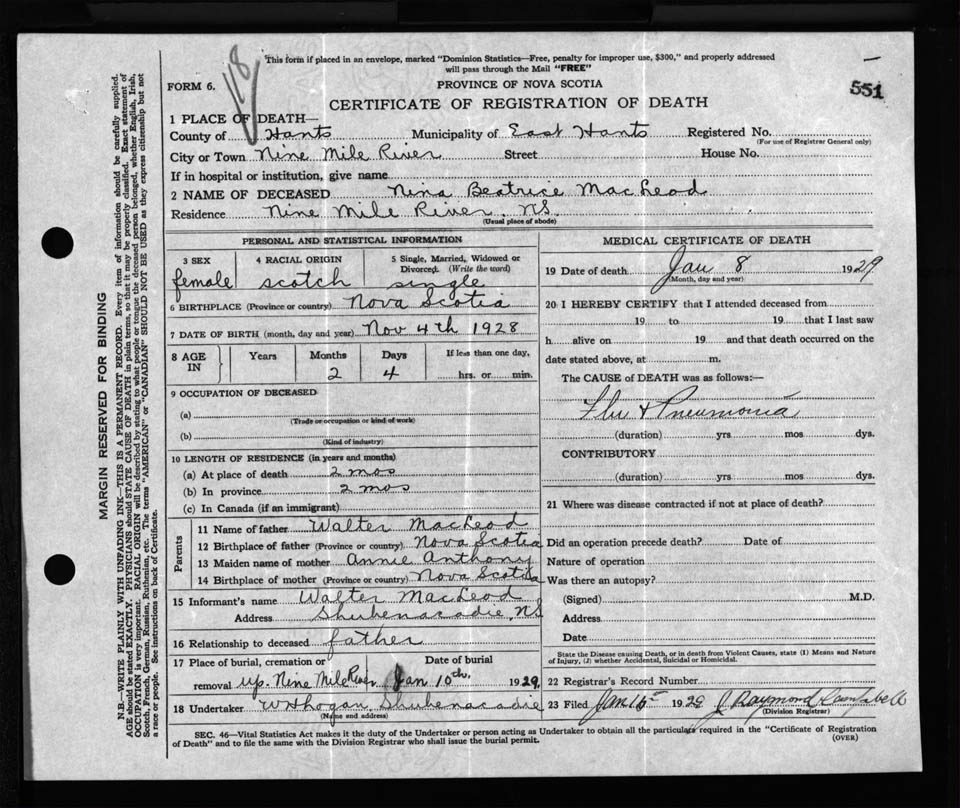 118
This form if placed in an envelope, marked "Dominion Statistics—Free, penalty for improper use, $300," and properly addressed
will pass through the Mail "FREE"
FORM 6.
PROVINCE OF NOVA SCOTIA
551
CERTIFICATE OF REGISTRATION OF DEATH
1 PLACE OF DEATH—
County of Hants Municipality of East Hants Registered No.
(For use of Registrar General only)
City or Town Nine Mile River Street House No.
If in hospital or institution, give name
2 NAME OF DECEASED Nina Beatrice MacLeod
Residence Nine Mile River, NS.
(Usual place of abode)
PERSONAL AND STATISTICAL INFORMATION
3 SEX 4 RACIAL ORIGIN 5 Single, Married, Widowed or
Divorced. (Write the word)
female scotch single
6 BIRTHPLACE (Province or country) Nova Scotia
7 DATE OF BIRTH (month, day and year) Nov 4th 1928
8 AGE IN Years Months Days If less than one day,
2 4 hrs. or min.
9 OCCUPATION OF DECEASED
(a)
(Trade or occupation or kind of work)
(b)
(Kind of industry)
10 LENGTH OF RESIDENCE (in years and months)
(a) At place of death 2 mos
(b) In province 2 mos
(c) In Canada (if an immigrant)
Parents
11 Name of father Walter MacLeod
12 Birthplace of father (Province or country) Nova Scotia
13 Maiden name of mother Annie Anthony
14 Birthplace of mother (Province or country) Nova Scotia
15 Informant's name Walter MacLeod
Address Shubenacadie, NS
16 Relationship to deceased father
17 Place of burial, cremation or Date of burial
removal up. Nine Mile River Jan 10th, 1929
18 Undertaker Hogan Shubenacadie
(Name and address)
MEDICAL CERTIFICATE OF DEATH
19 Date of death Jan 8 1929
(Month, day and year)
20 I HEREBY CERTIFY that I attended deceased from
19 to 19 that I last saw
h alive on 19 and that death occurred on the
date stated above, at m.
The CAUSE of DEATH was as follows:—
Flu & Pneumonia
(duration) yrs mos dys.
CONTRIBUTORY
(duration) yrs mos dys.
21 Where was disease contracted if not at place of death?
Did an operation precede death? Date of
Nature of operation
Was there an autopsy?
(Signed) M.D.
Address
Date
State the Disease causing Death, or in death from Violent Causes, state (1) Means and Nature
of Injury, (2) whether Accidental, Suicidal or Homicidal.
22 Registrar's Record Number
23 Filed Jan 1929 J Raymond Campbell
(Division Registrar)
SEC. 46—Vital Statistics Act makes it the duty of the Undertaker or person acting as Undertaker to obtain all the particulars required in the "Certificate of Registration
of Death" and to file the same with the Division Registrar who shall issue the burial permit.
(OVER)
MARGIN RESERVED FOR BINDING
N.B.—WRITE PLAINLY WITH UNFADING INK—THIS IS A PERMANENT RECORD. Every item of information should be carefully supplied.
AGE should be stated EXACTLY. PHYSICIANS should STATE CAUSE OF DEATH in plain terms, so that it may be properly classified. Exact statement of
OCCUPATION is very important. RACIAL ORIGIN will be described by stating to what people or tongue the deceased person belonged, whether English, Irish,
Scotch, French, German, Russian, Ruthenian, etc. The terms "AMERICAN" or "CANADIAN" SHOULD NOT BE USED as they express citizenship but not
a race or people. See instructions on back of Certificate.